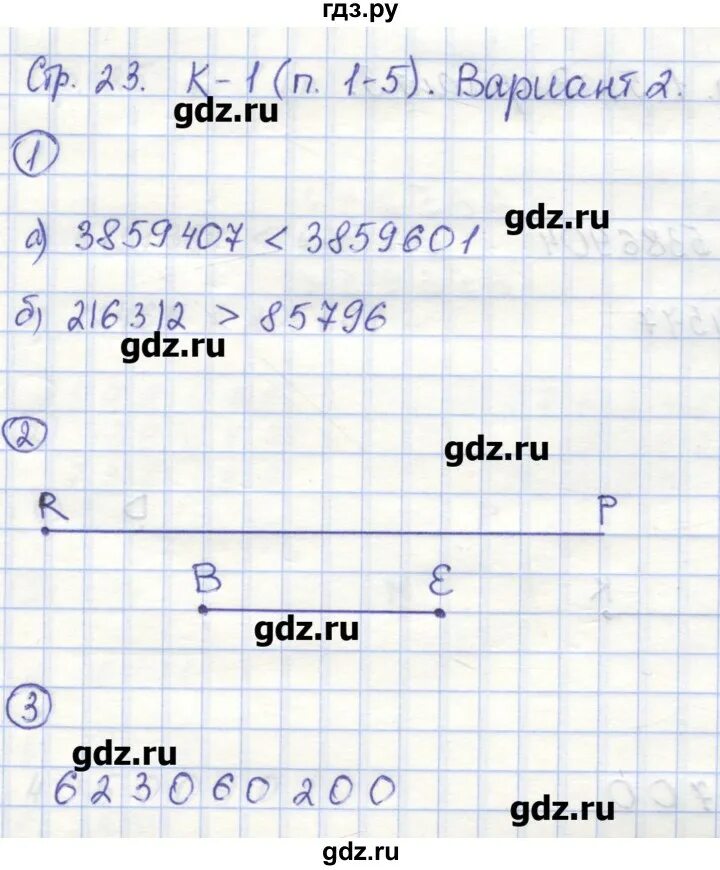 гдз.ру
Стр. 23. К-1 (п. 1-5). Вариант 2.
gdz.ru
1
gdz.ru
а) 3859407 < 3859601
б) 216312 > 85796
gdz.ru
2
gdz.ru
R P
B E
gdz.ru
3
gdz.ru
623060200
gdz.ru
gdz.ru